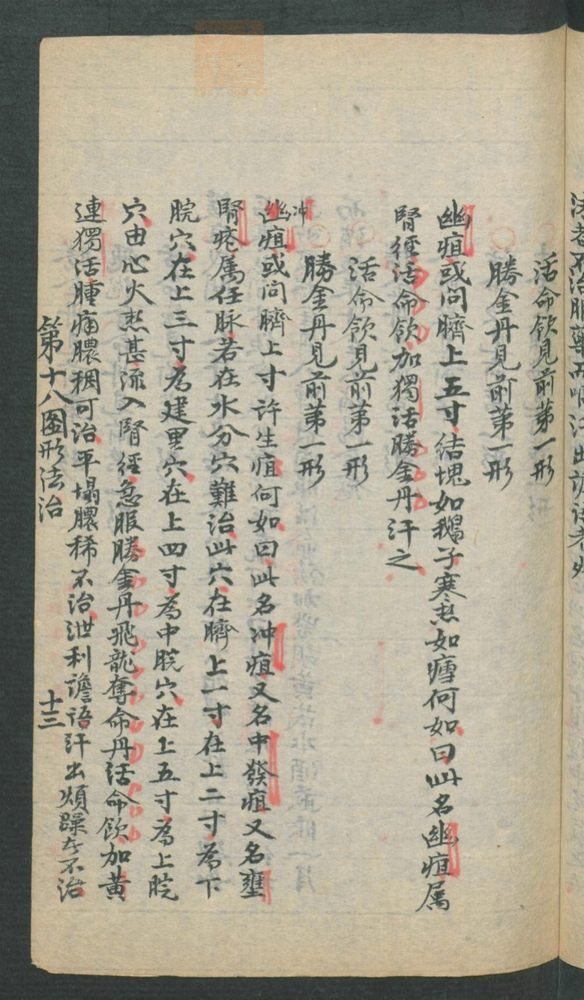 活命飲見前第一形
勝金丹見前第一形
幽疽或问臍上五寸结塊如鵝子寒热如瘧何如曰此名幽疽属
腎经活命飲加獨活勝金丹汗之
活命飲見前第一形
勝金丹見前第一形
幽冲疽或问臍上寸许生疽何如曰此名冲疽又名中發疽又名壅
腎疮属任脉若在水分穴難治此穴在臍上一寸在上二寸為下
脘穴在上三寸為建里穴在上四寸為中脘穴在上五寸為上脘
穴由心火热甚流入腎经急服勝金丹飛龍奪命丹活命飲加黄
連獨活腫痛膿稠可治平塌膿稀不治泄利譫语汗出煩躁者不治
第十八图形法治
十三